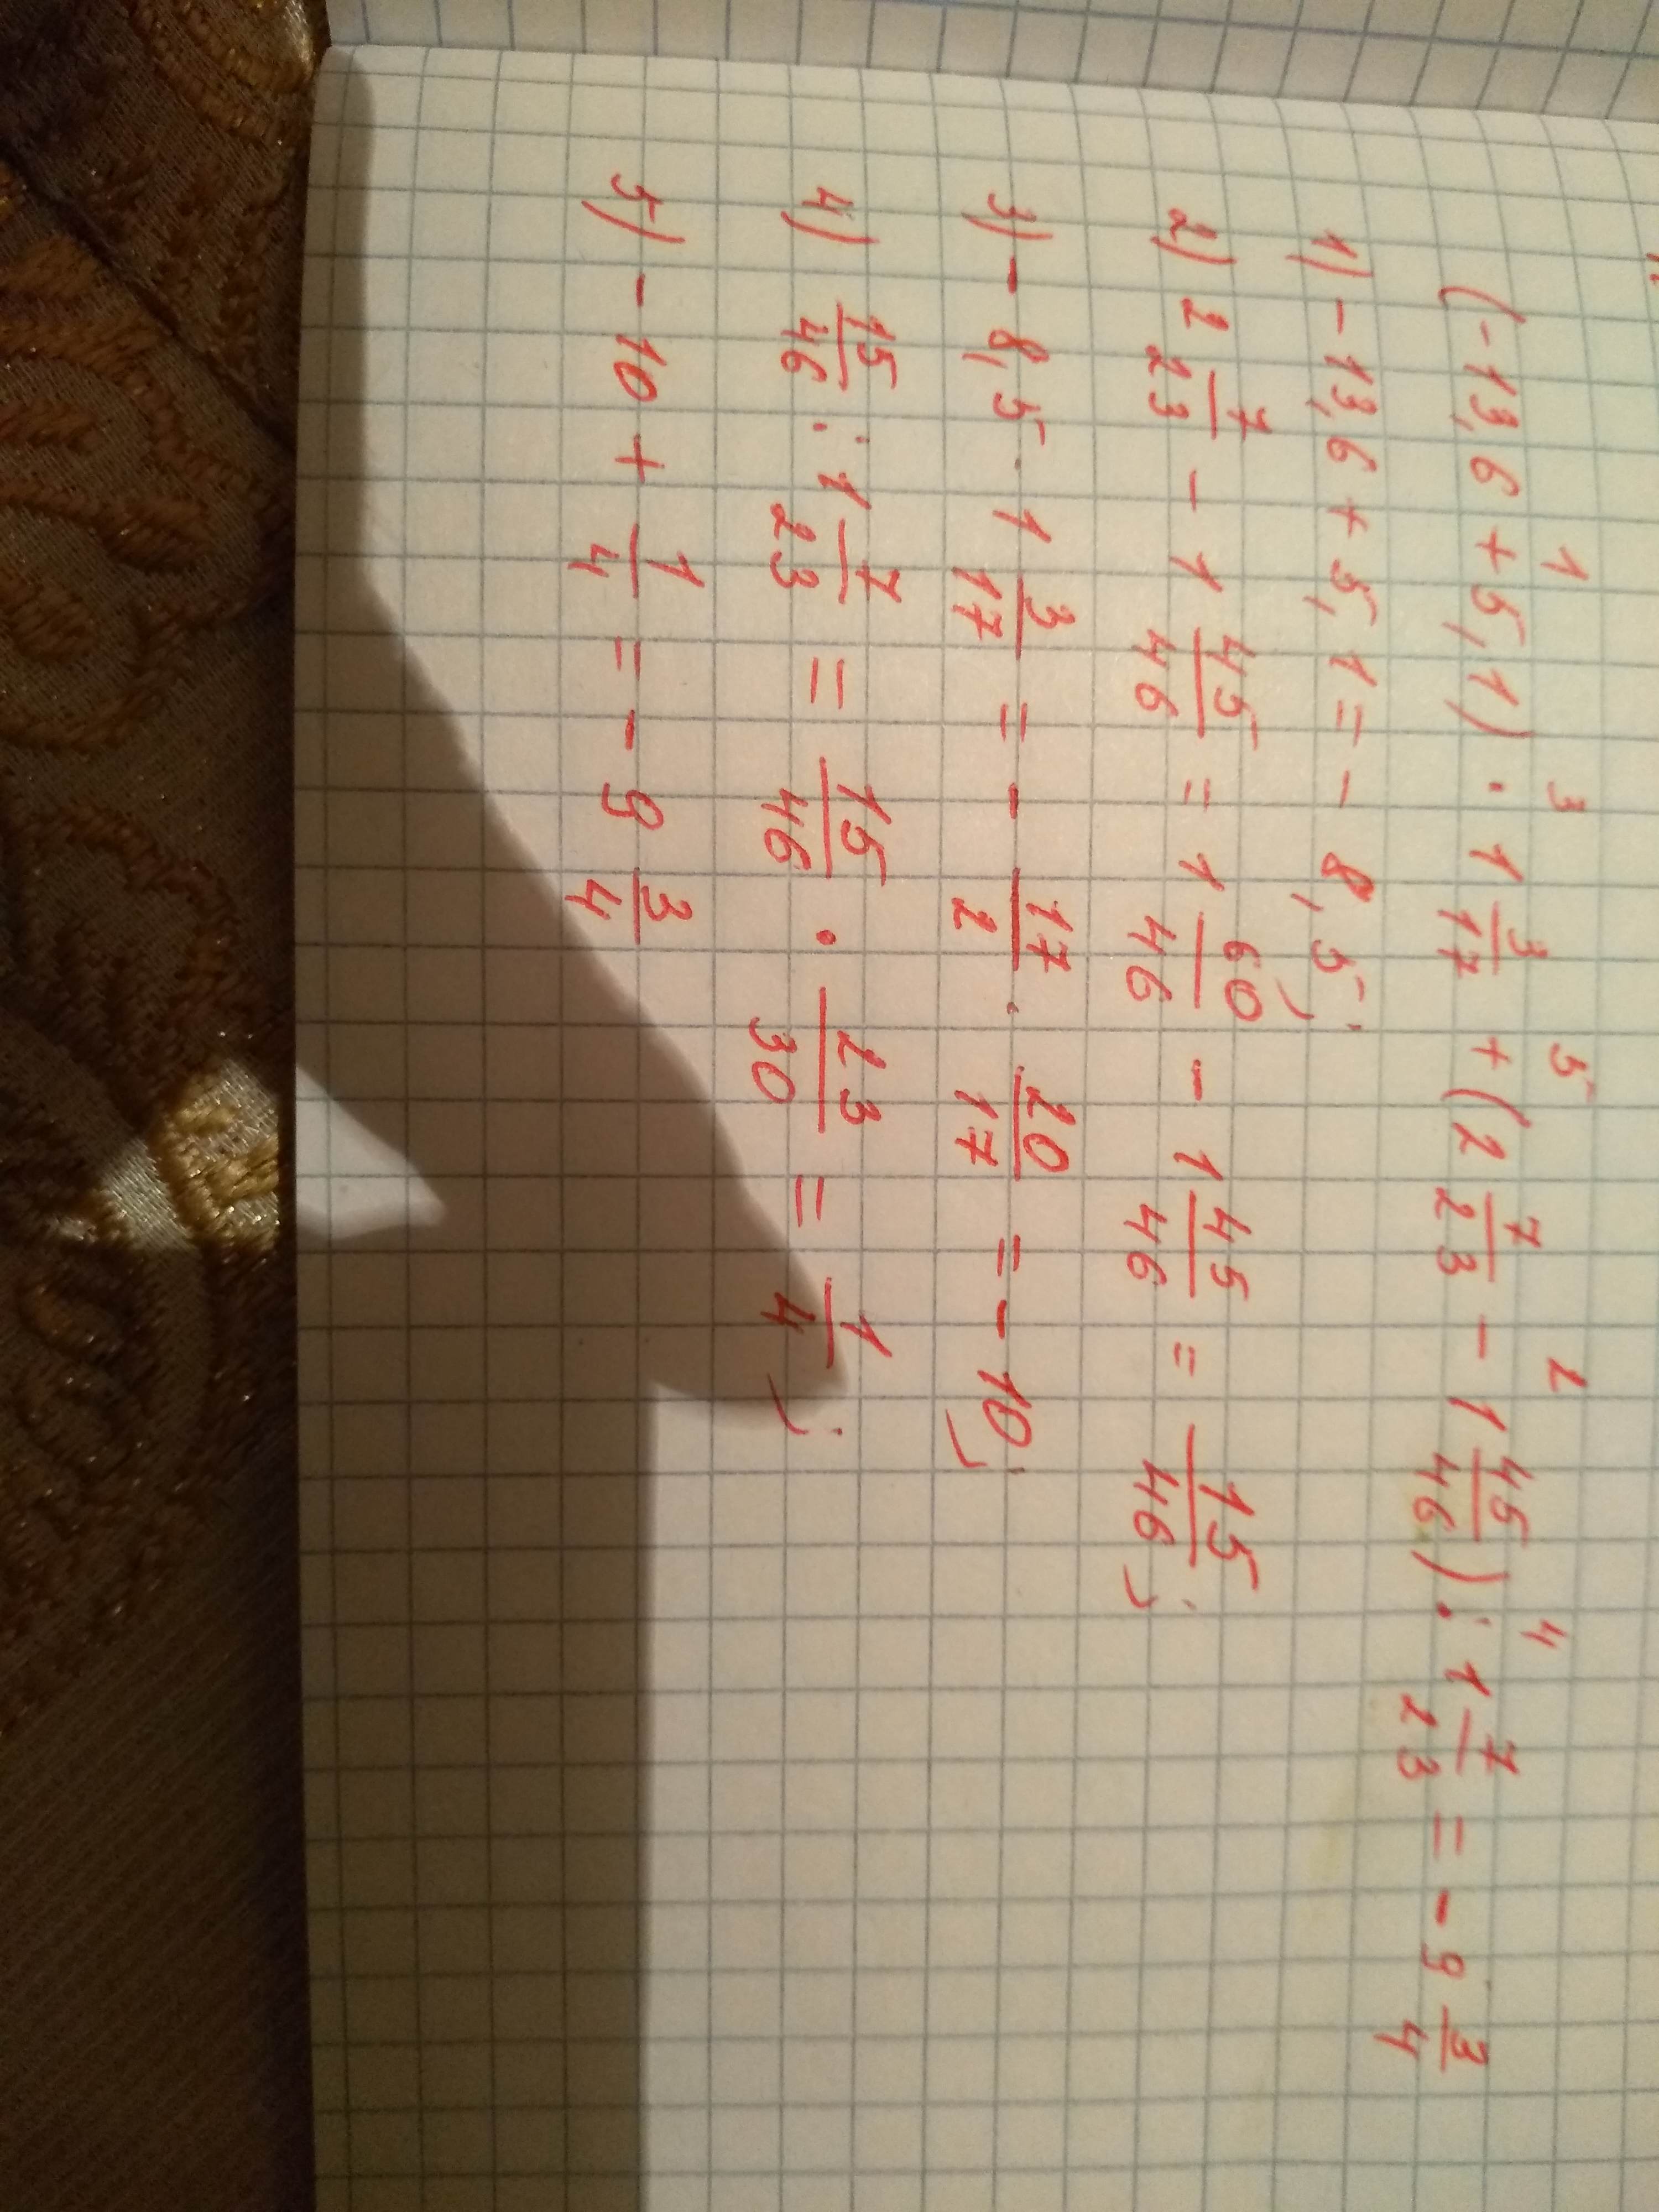 1 3 5 2 4
(-13,6 + 5,1) · 1 3/17 + (2 7/23 - 1 45/46) : 1 7/23 = - 9 3/4
1) - 13,6 + 5,1 = - 8,5;
2) 2 7/23 - 1 45/46 = 1 60/46 - 1 45/46 = 15/46;
3) - 8,5 · 1 3/17 = - 17/2 · 20/17 = - 10;
4) 15/46 : 1 7/23 = 15/46 · 23/30 = 1/4;
5) - 10 + 1/4 = - 9 3/4